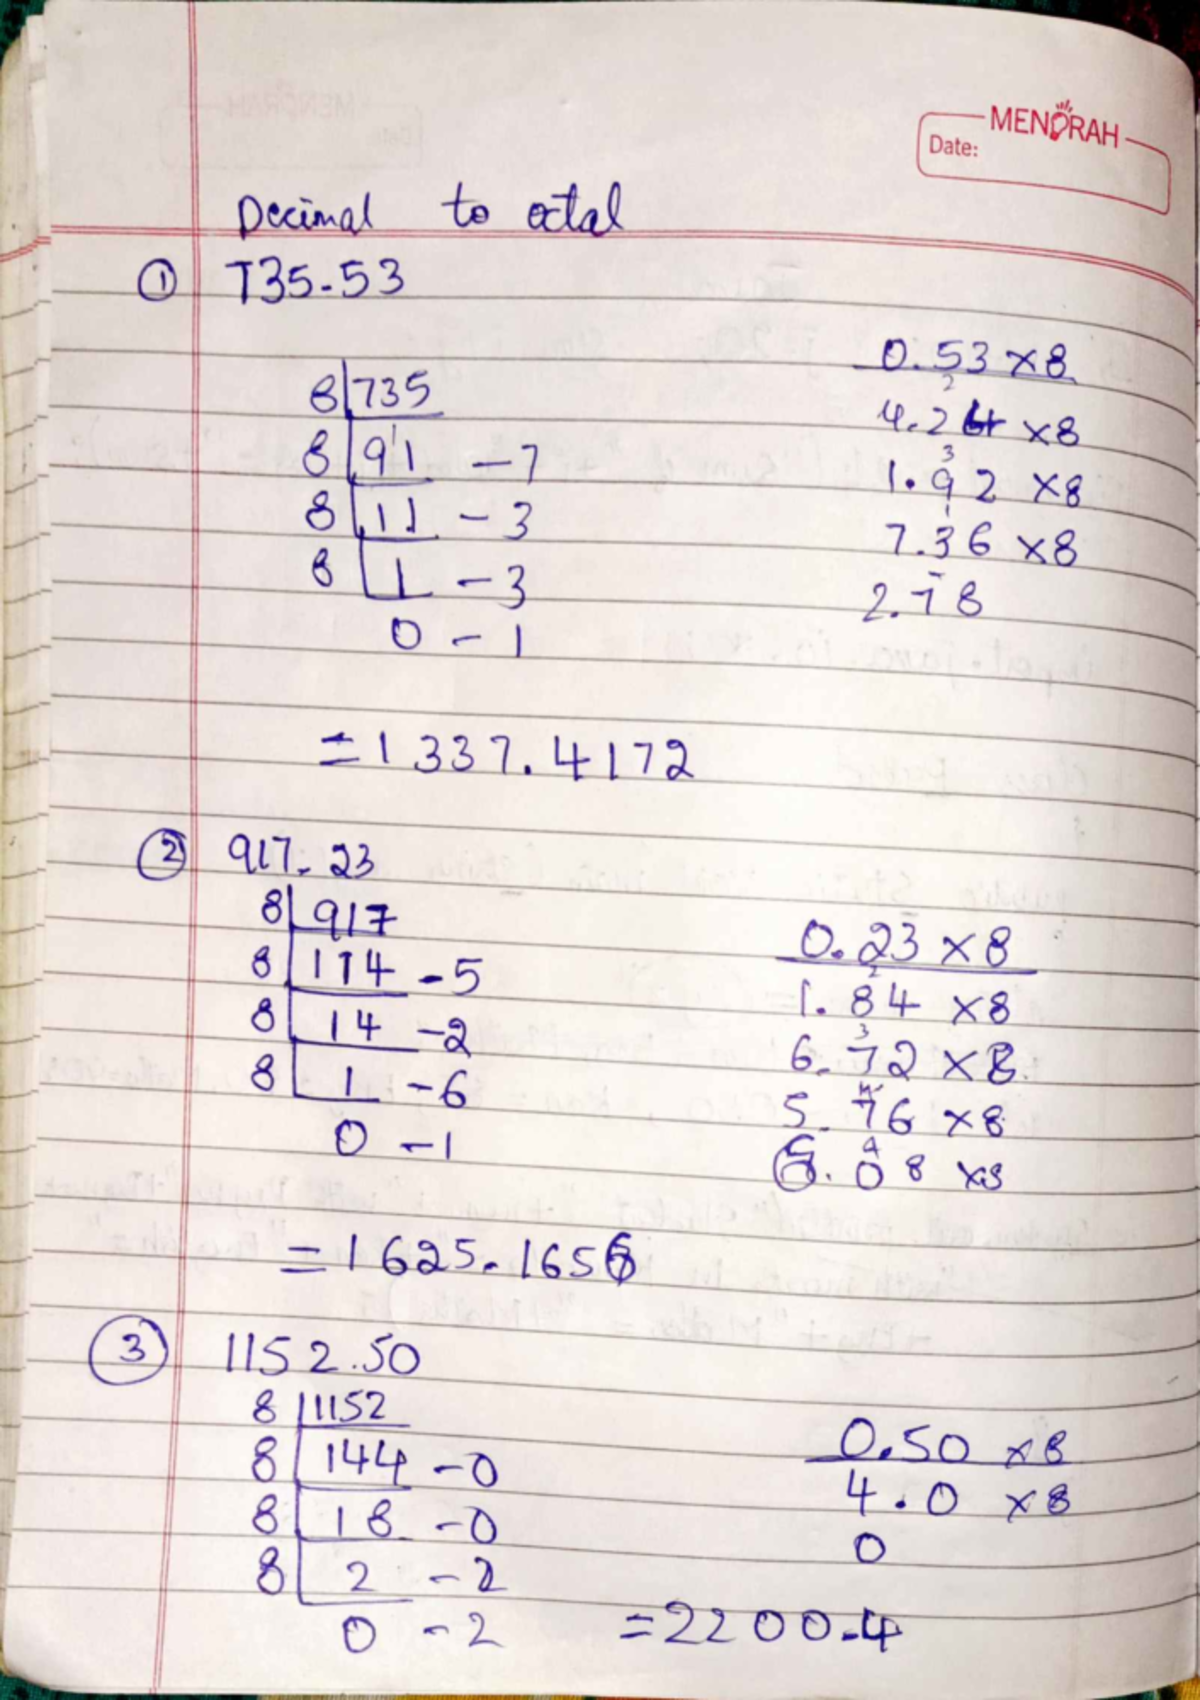 MENORAH
Date:
Decimal to octal
① 735.53
8 735
8 91 - 7
8 11 - 3
8 1 - 3
0 - 1
0.53 ×8
4.24 ×8
1.92 ×8
7.36 ×8
2.78
= 1337.4172
② 917.23
8 917
8 114 - 5
8 14 - 2
8 1 - 6
0 - 1
0.23 ×8
1.84 ×8
6.72 ×8
5.76 ×8
6.08 ×8
= 1625.1656
③ 1152.50
8 1152
8 144 - 0
8 18 - 0
8 2 - 2
0 - 2
0.50 ×8
4.0 ×8
0
= 2200.4